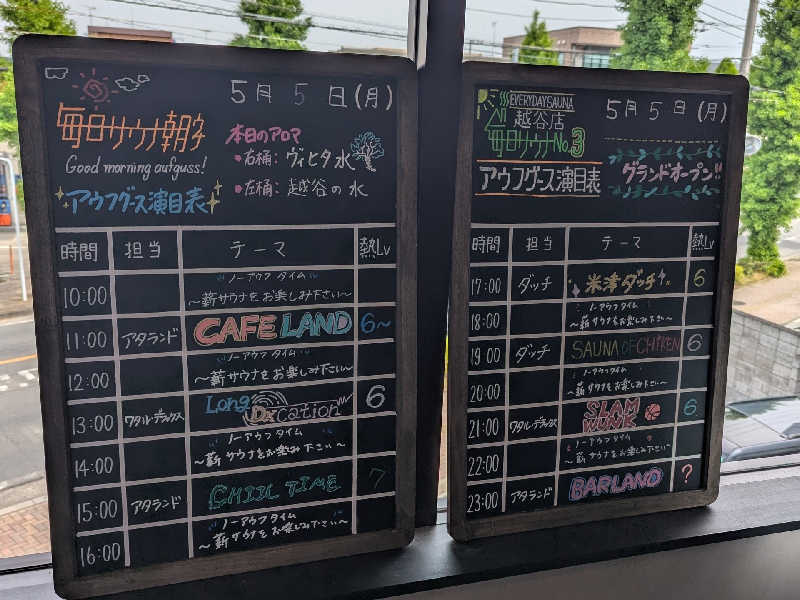 5月 5 日(月)
毎日サウナ朝
本日のアロマ
Good morning aufguss!
・右桶: ヴィヒタ水
アウフグース演目表
・左桶: 越谷の水
時間 担当 テーマ 熱Lv
10:00 ノーアウフタイム
～薪サウナをお楽しみ下さい～
11:00 アタランド CAFE LAND 6～
12:00 ノーアウフタイム
～薪サウナをお楽しみ下さい～
13:00 ワタル・デラックス Long Dxcation 6
14:00 ノーアウフタイム
～薪サウナをお楽しみ下さい～
15:00 アタランド CHIIL TIME 7
16:00 ノーアウフタイム
～薪サウナをお楽しみ下さい～
EVERYDAYSAUNA
越谷店
毎日サウナNo.3
アウフグース演目表
5月 5 日(月)
グランドオープン!!
時間 担当 テーマ 熱Lv
17:00 ダッチ 米津ダッチ 6
18:00 ノーアウフタイム
～薪サウナをお楽しみ下さい～
19:00 ダッチ SAUNA OF CHIKEN 6
20:00 ノーアウフタイム
～薪サウナをお楽しみ下さい～
21:00 ワタル・デラックス SLAM WUNK 6
22:00 ノーアウフタイム
～薪サウナをお楽しみ下さい～
23:00 アタランド BARLAND ?